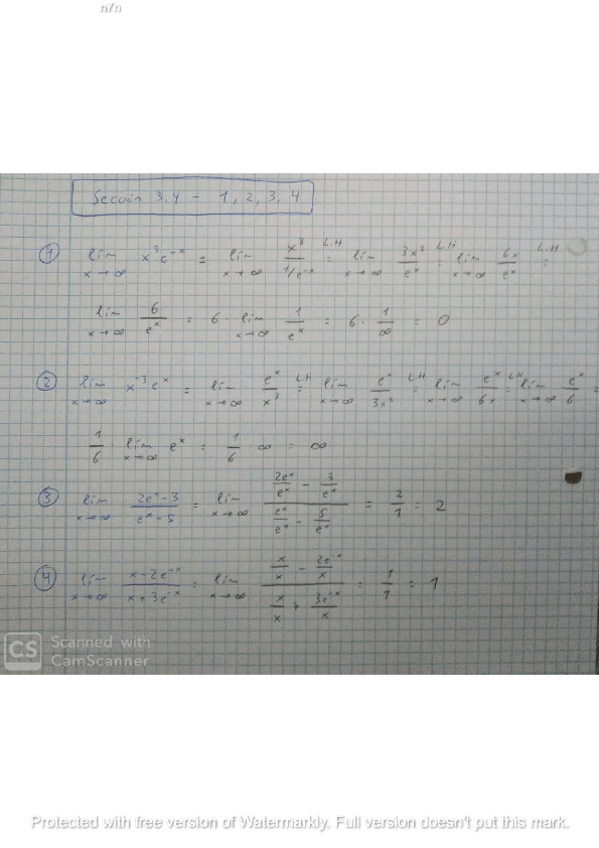 n7n
Section 3.4 - 1, 2, 3, 4
① lim x→∞ x³e⁻ˣ = lim x→∞ x³ / 1/e⁻ˣ L.H = lim x→∞ 3x² / eˣ L.H = lim x→∞ 6x / eˣ L.H =
lim x→∞ 6 / eˣ = 6 · lim x→∞ 1 / eˣ = 6 · 1/∞ = 0
② lim x→∞ x⁻³eˣ = lim x→∞ eˣ / x³ = LH lim x→∞ eˣ / 3x² = LH lim x→∞ eˣ / 6x = LH lim x→∞ eˣ / 6 =
1/6 · lim x→∞ eˣ = 1/6 · ∞ = ∞
③ lim x→∞ 2eˣ-3 / eˣ-5 = lim x→∞ (2eˣ/eˣ - 3/eˣ) / (eˣ/eˣ - 5/eˣ) = 2/1 = 2
④ lim x→∞ x-2e⁻ˣ / x+3e⁻ˣ = lim x→∞ (x/x - 2e⁻ˣ/x) / (x/x + 3e⁻ˣ/x) = 1/1 = 1
CS Scanned with
CamScanner
Protected with free version of Watermarkly. Full version doesn't put this mark.